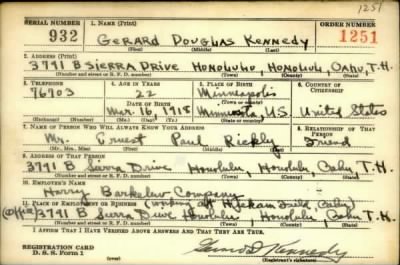 1251
SERIAL NUMBER 1. NAME (Print) ORDER NUMBER
932 GERARD DOUGLAS KENNEDY 1251
(First) (Middle) (Last)
2. ADDRESS (Print)
3791 B SIERRA DRIVE HONOLULU, HONOLULU, OAHU, T.H.
(Number and street or R. F. D. number) (Town) (County) (State)
3. TELEPHONE 4. AGE IN YEARS 5. PLACE OF BIRTH 6. COUNTRY OF CITIZENSHIP
76703 22 Minneapolis
DATE OF BIRTH (Town or county)
Mar. 16, 1918 Minnesota, U.S. United States
(Mo.) (Day) (Yr.) (State or country)
7. NAME OF PERSON WHO WILL ALWAYS KNOW YOUR ADDRESS 8. RELATIONSHIP OF THAT PERSON
Mr. Ernest Paul Rickly Friend
(Mr., Mrs., Miss) (First) (Middle) (Last)
9. ADDRESS OF THAT PERSON
3791 B Sierra Drive Honolulu, Honolulu, Oahu, T.H.
(Number and street or R. F. D. number) (Town) (County) (State)
10. EMPLOYER'S NAME
Harry Barkalow Company
11. PLACE OF EMPLOYMENT OR BUSINESS (working at Hickam Field, Oahu)
3791 B Sierra Drive Honolulu, Honolulu, Oahu T.H.
(Number and street or R. F. D. number) (Town) (County) (State)
I AFFIRM THAT I HAVE VERIFIED ABOVE ANSWERS AND THAT THEY ARE TRUE.
REGISTRATION CARD
D. S. S. Form 1 Gerard D. Kennedy
(Registrant's signature)